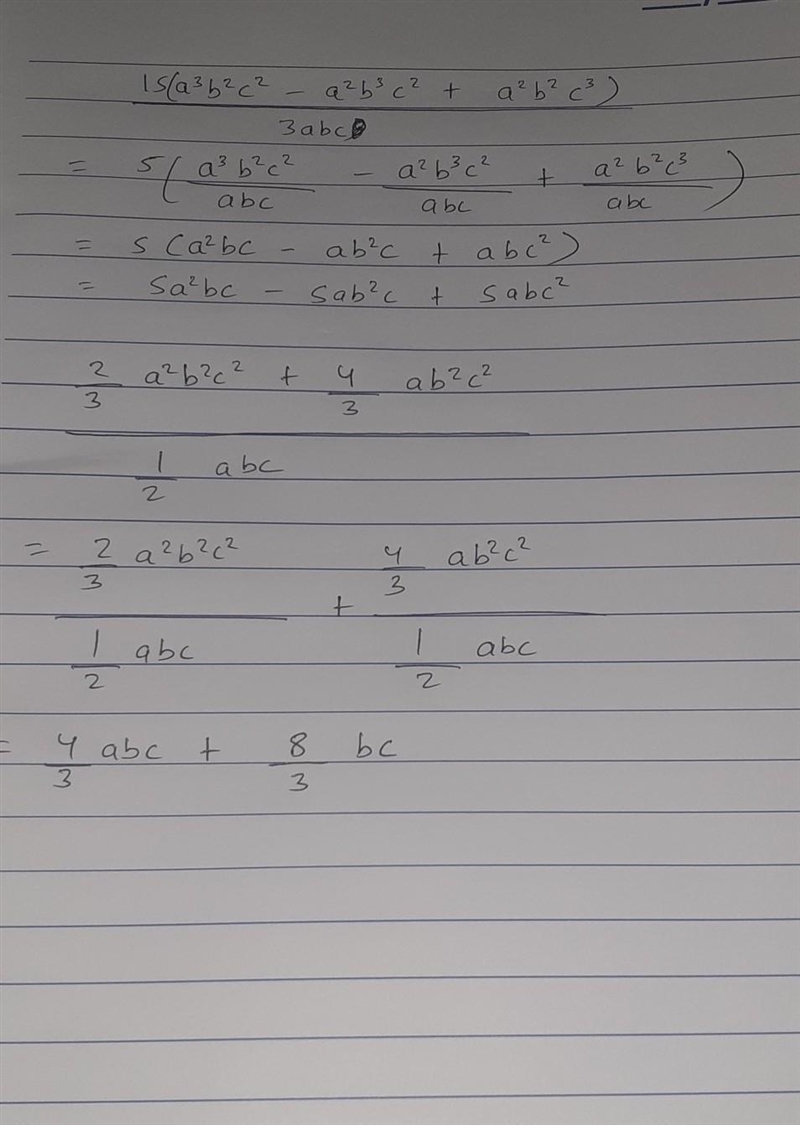 15(a³b²c² − a²b³c² + a²b²c³)
3abc
= 5( a³b²c²/abc − a²b³c²/abc + a²b²c³/abc )
= 5(a²bc − ab²c + abc²)
= 5a²bc − 5ab²c + 5abc²
2/3 a²b²c² + 4/3 ab²c²
1/2 abc
= 2/3 a²b²c² + 4/3 ab²c²
1/2 abc 1/2 abc
= 4/3 abc + 8/3 bc